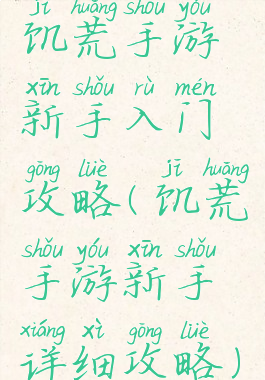 jī huāng shǒu yóu
饥荒手游
xīn shǒu rù mén
新手入门
gōng lüè jī huāng
攻略(饥荒
shǒu yóu xīn shǒu
手游新手
xiáng xì gōng lüè
详细攻略)